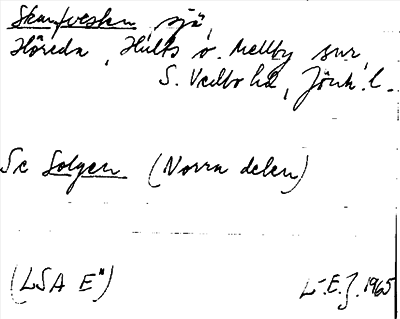 Skanfvesken sjö
Höreda, Hults o. Mellby snr
S. Vedbo hd, Jönk. l.
Se Solgen (Norra delen)
(LSA E")
L-E.J. 1965